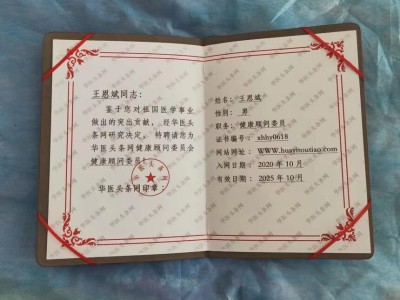 王恩斌同志：
鉴于您对祖国医学事业
做出的突出贡献，经华医头
条网研究决定，特聘请您为
华医头条网健康顾问委员会
健康顾问委员！
华医头条网印章：
姓名：王恩斌
性别：男
职务：健康顾问委员
证书编号：xhhy0618
网站网址：WWW.huayitoutiao.com
入网日期：2020年10月
有效日期：2025年10月